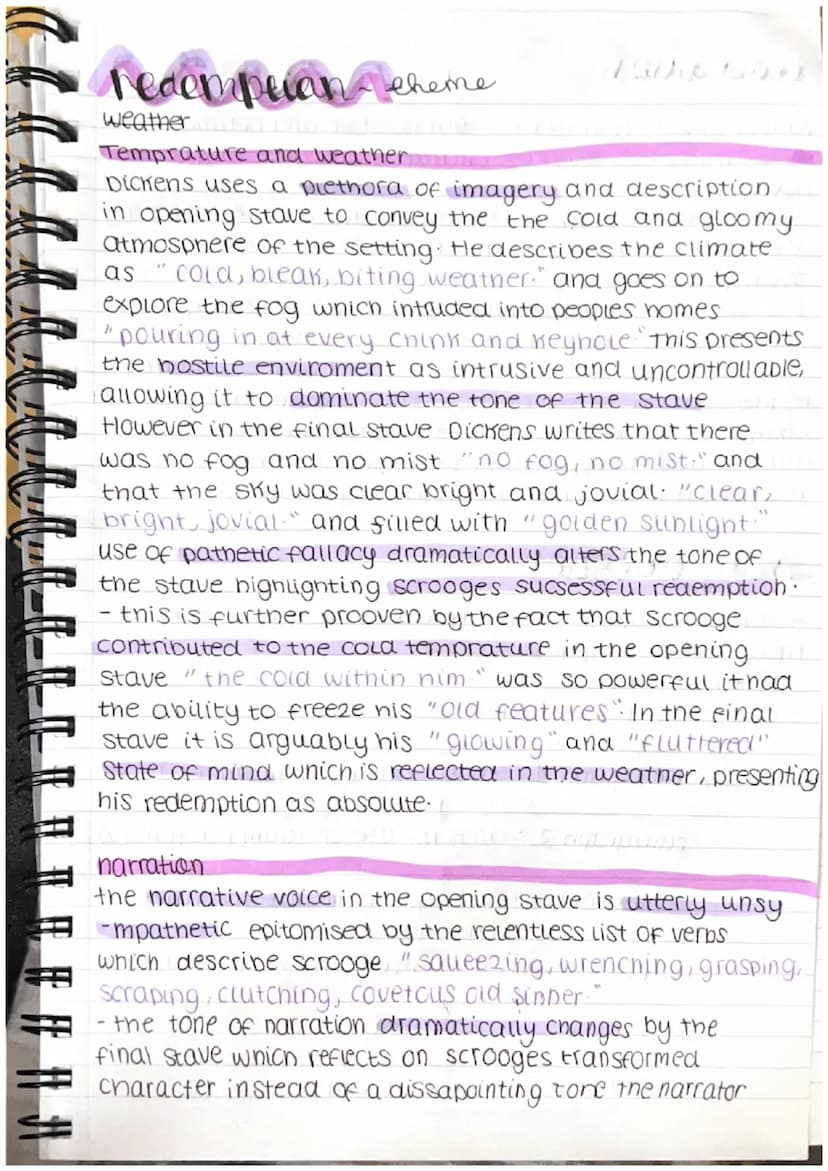 redemption - theme
weather
Temprature and weather
Dickens uses a plethora of imagery and description
in opening stave to convey the the cold and gloomy
atmosphere of the setting. He describes the climate
as "cold, bleak, biting weather." and goes on to
explore the fog which intruded into peoples homes
"pouring in at every chink and keyhole" This presents
the hostile enviroment as intrusive and uncontrollable,
allowing it to dominate the tone of the stave
However in the final stave Dickens writes that there
was no fog and no mist "no fog, no mist." and
that the sky was clear bright and jovial. "clear,
bright, jovial." and filled with "golden sunlight."
use of pathetic fallacy dramatically alters the tone of
the stave highlighting scrooges sucsessful redemption.
- this is further prooven by the fact that scrooge
contributed to the cold temprature in the opening
stave "the cold within him" was so powerful it had
the ability to freeze his "old features". In the final
stave it is arguably his "glowing" and "fluttered"
state of mind which is reflected in the weather, presenting
his redemption as absolute.
narration
the narrative voice in the opening stave is utterly unsy
-mpathetic epitomised by the relentless list of verbs
which describe scrooge "squeezing, wrenching, grasping,
scraping, clutching, covetous old sinner."
- the tone of narration dramatically changes by the
final stave which reflects on scrooges transformed
character instead of a dissapointing tone the narrator